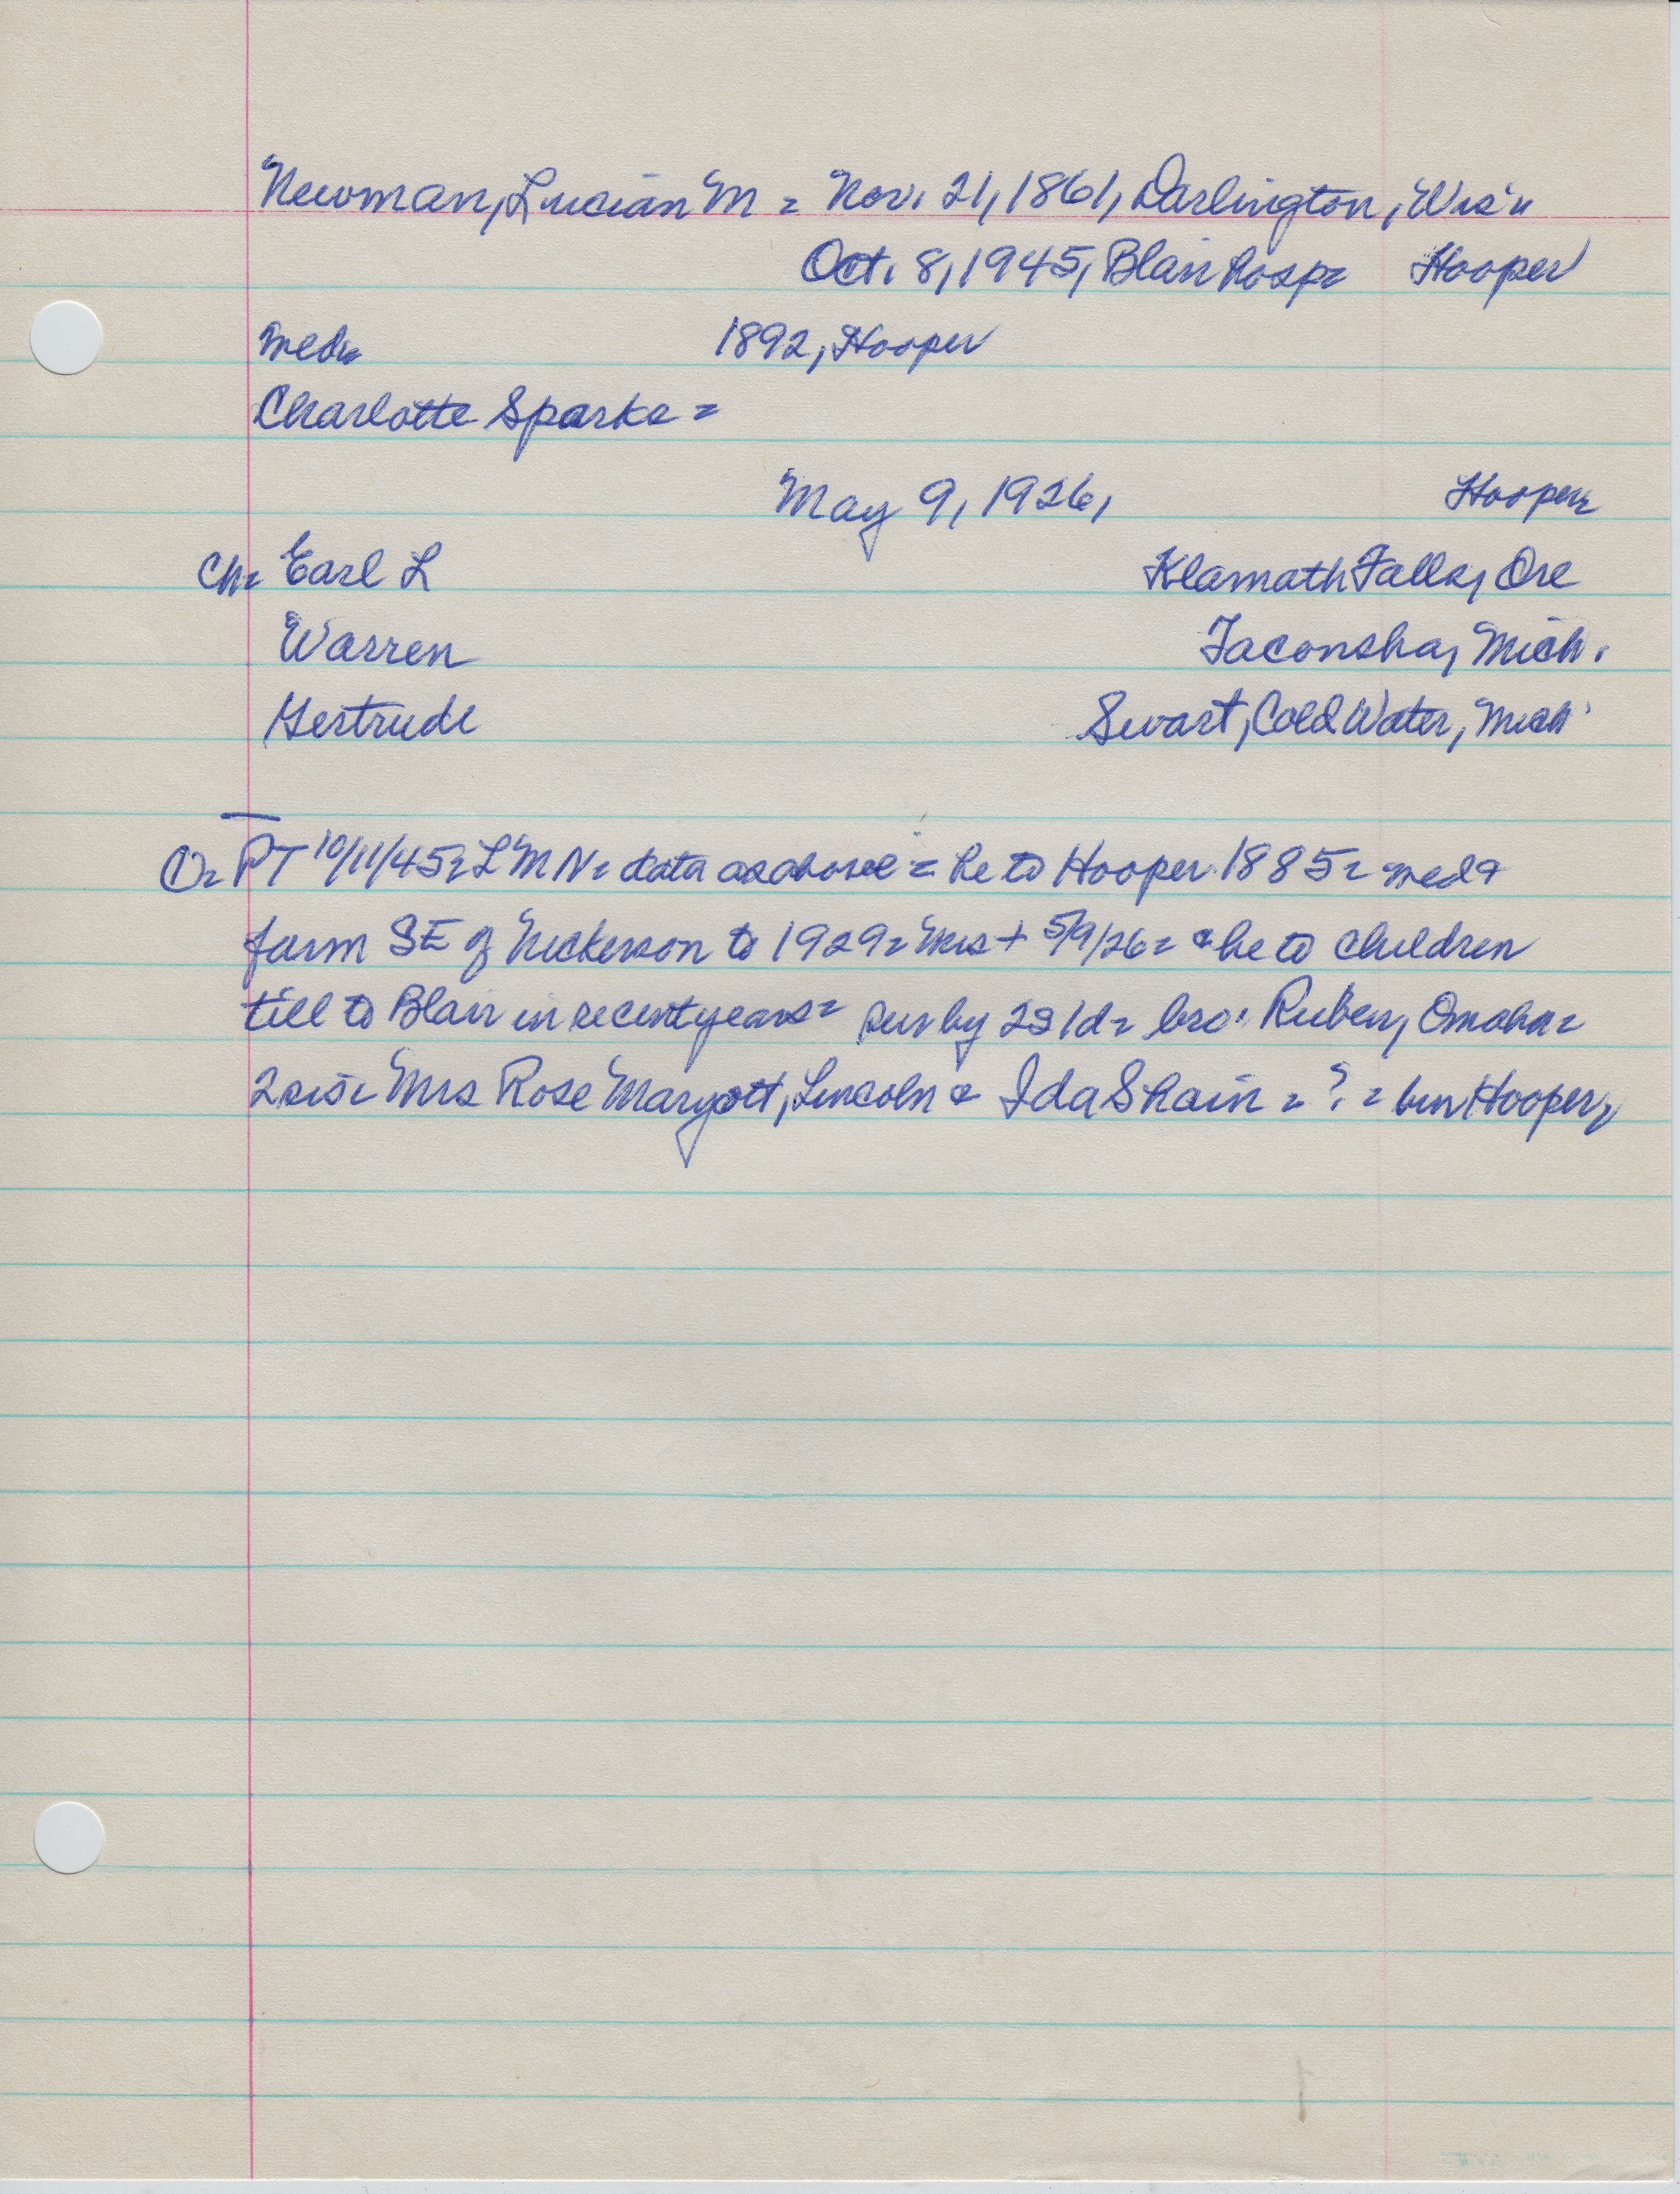 Newman, Lucian M = Nov. 21, 1861, Darlington, Wis'n
Oct. 8, 1945, Blair Hosp= Hooper
med= 1892, Hooper
Charlotte Sparks =
May 9, 1926, Hooper=
Ch= Earl L Klamath Falls, Ore
Warren Taconsha, Mich.
Gertrude Swart, Cold Water, Mich
O= PT 10/11/45= L M N= data as above = he to Hooper 1885= med &
farm SE of Nickerson to 1929= Mrs + 5/9/26= & he to children
till to Blair in recent years= sur by 2s 1d= bro. Ruben, Omaha=
2 sis= Mrs Rose Margott, Lincoln & Ida Shain = ? = bur Hooper=